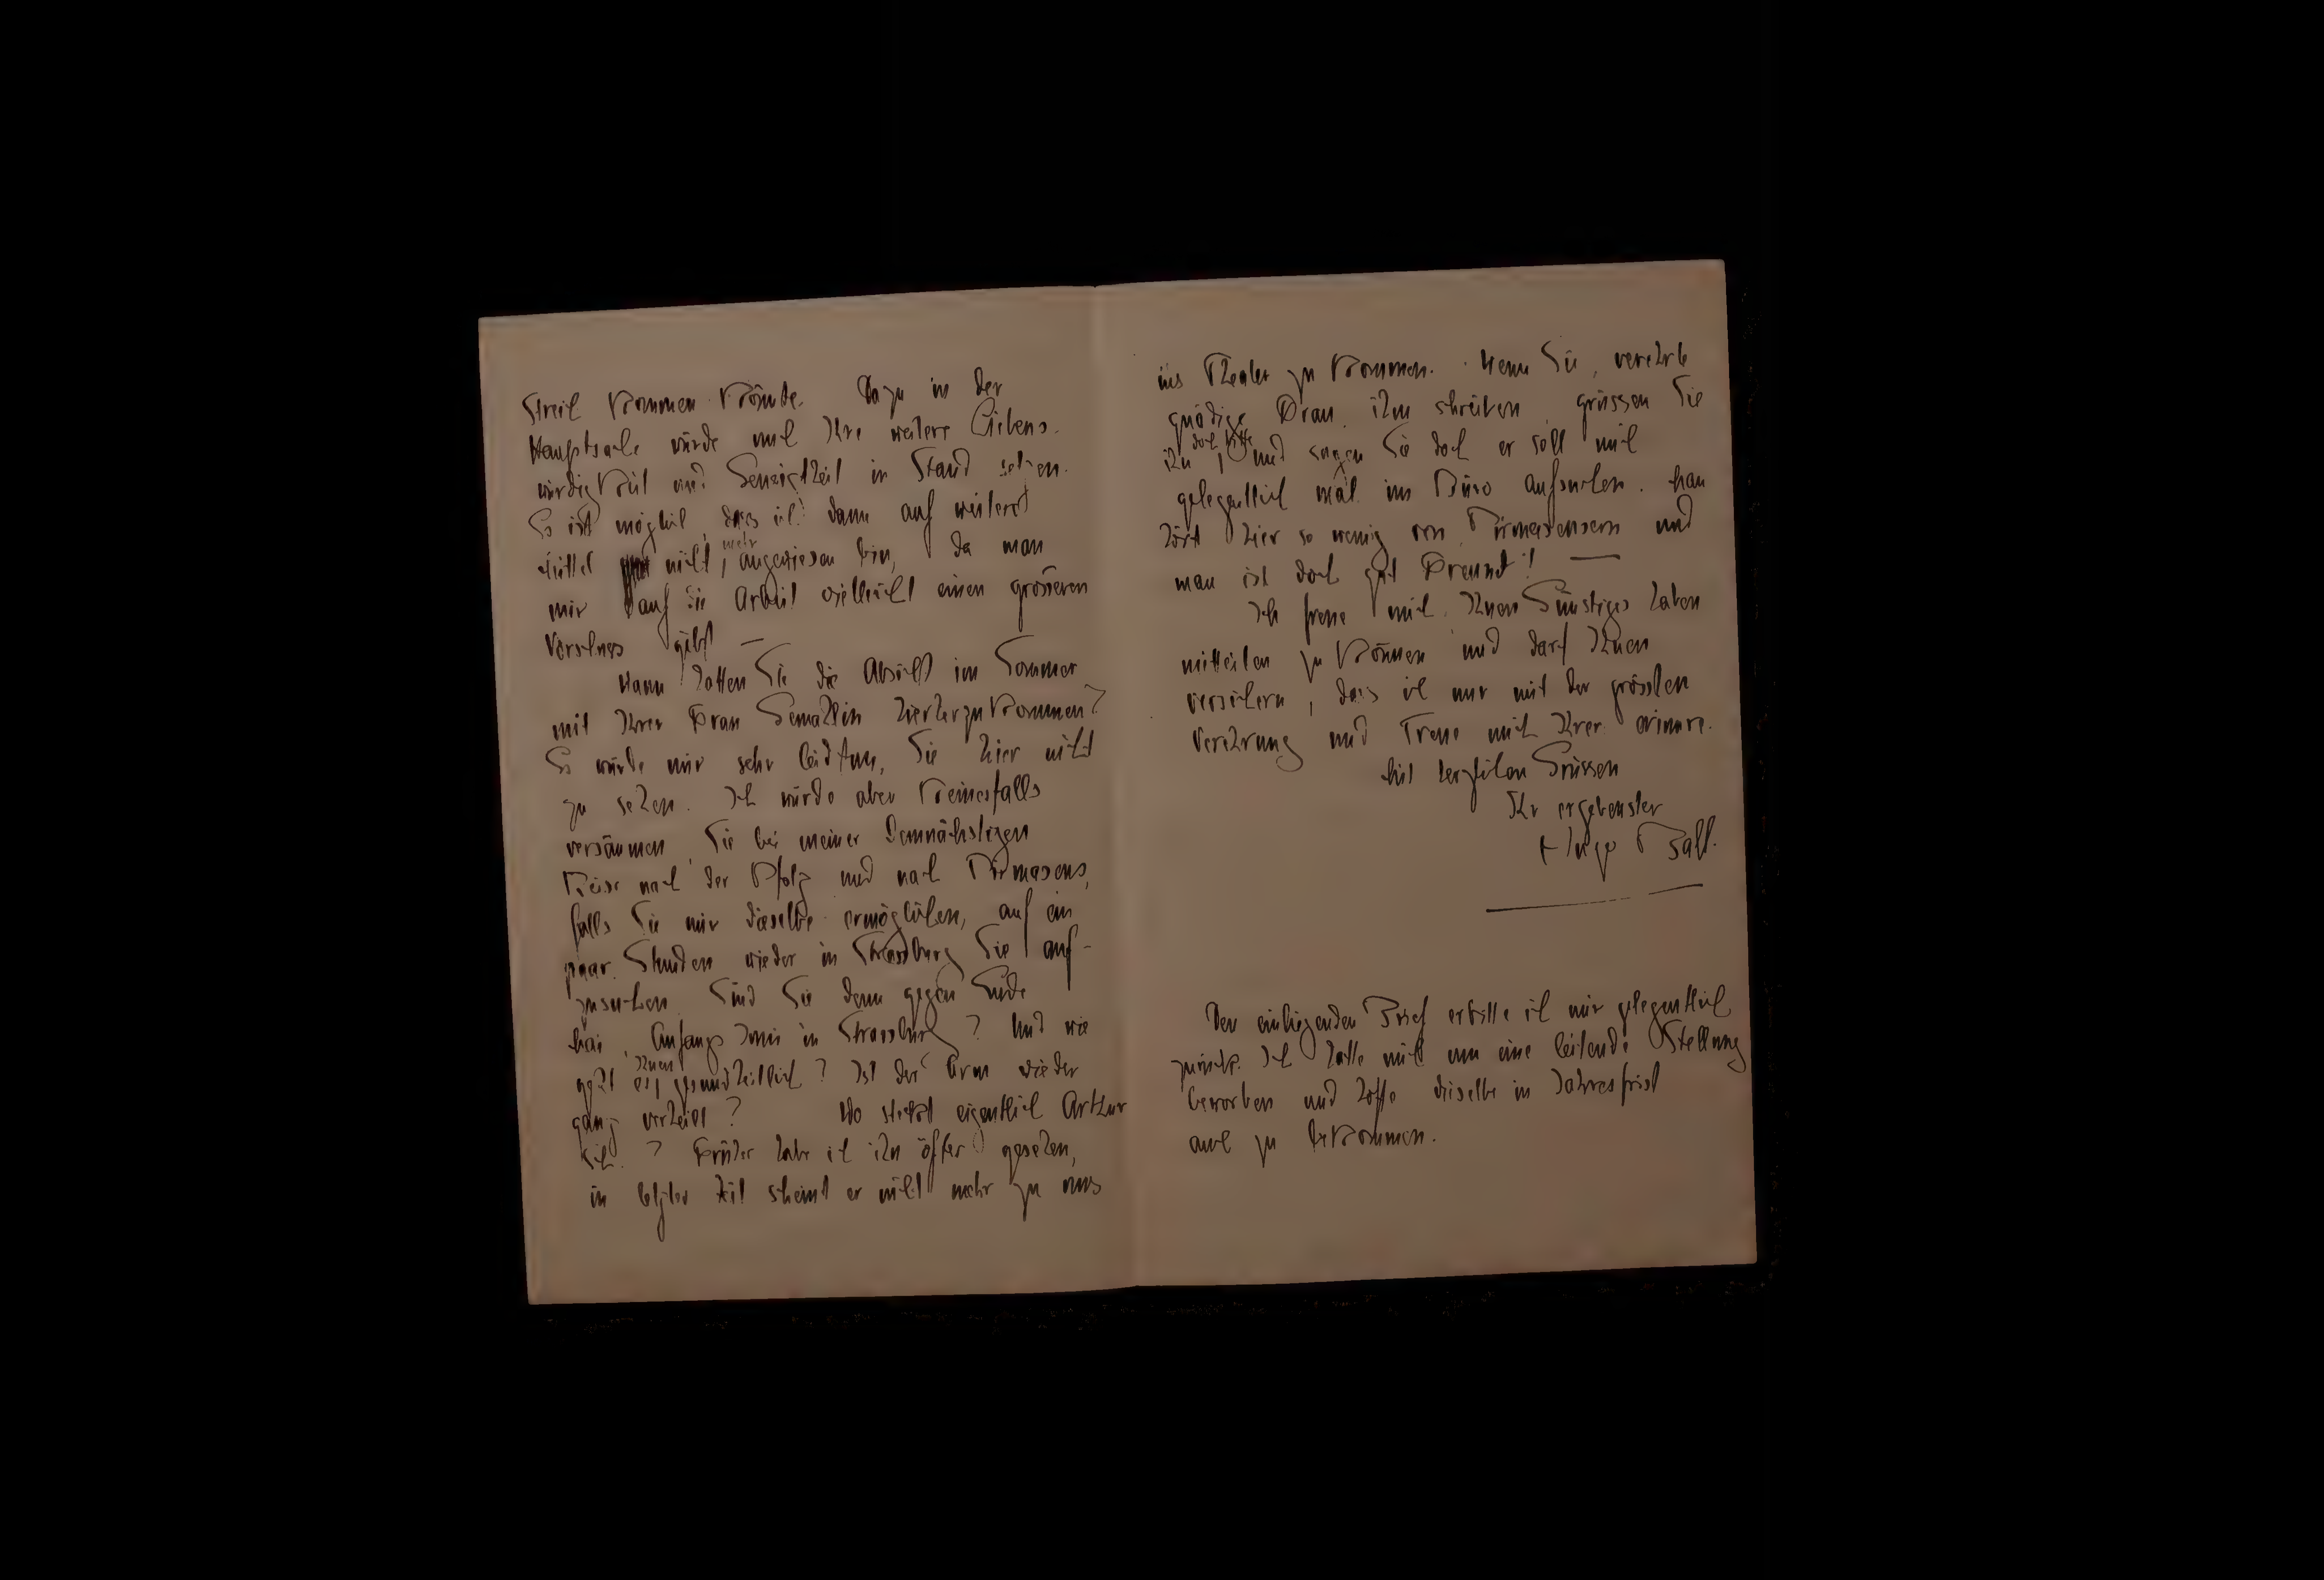 Streich kommen könnte. Dazu in der
Hauptsache würde mich Ihre weitere Liebens-
würdigkeit und Geneigtheit in Stand setzen.
Es ist möglich, dass ich dann auf weitere
Mittel nicht mehr angewiesen bin, da man
mir auf die Arbeit vielleicht einen grösseren
Vorschuss gibt. —
Wann hatten Sie die Absicht im Sommer
mit Ihrer Frau Gemahlin hierherzukommen?
Es würde mir sehr leidtun, Sie hier nicht
zu sehen. Ich würde aber keinesfalls
versäumen, Sie bei meiner demnächstigen
Reise nach der Pfalz und nach Pirmasens,
falls Sie mir dieselbe ermöglichen, auf ein
paar Stunden wieder in Strassburg Sie auf-
zusuchen. Sind Sie denn gegen Ende
Mai, Anfangs Juni in Strassburg? Und wie
geht es Ihnen gesundheitlich? Ist der Arm wieder
ganz verheilt? Wo steckt eigentlich Arthur
? Früher habe ich ihn öfter gesehen,
in letzter Zeit scheint er nicht mehr zu uns
ins Theater zu kommen. Wenn Sie, verehrte
gnädige Frau, ihm schreiben, grüssen Sie
ihn doch bitte und sagen Sie doch er soll mich
gelegentlich mal im Büro aufsuchen. Man
hört hier so wenig von Pirmasensern und
man ist doch gut Freund! —
Ich freue mich, Ihnen Günstiges haben
mitteilen zu können und darf Ihnen
versichern, dass ich nur mit der grössten
Verehrung und Treue mich Ihrer erinnre.
Mit herzlichen Grüssen
Ihr ergebenster
Hugo Ball.
Den einliegenden Brief erbitte ich mir gelegentlich
zurück. Ich hatte mich um eine leitende Stellung
beworben und hoffe dieselbe in Jahresfrist
auch zu bekommen.